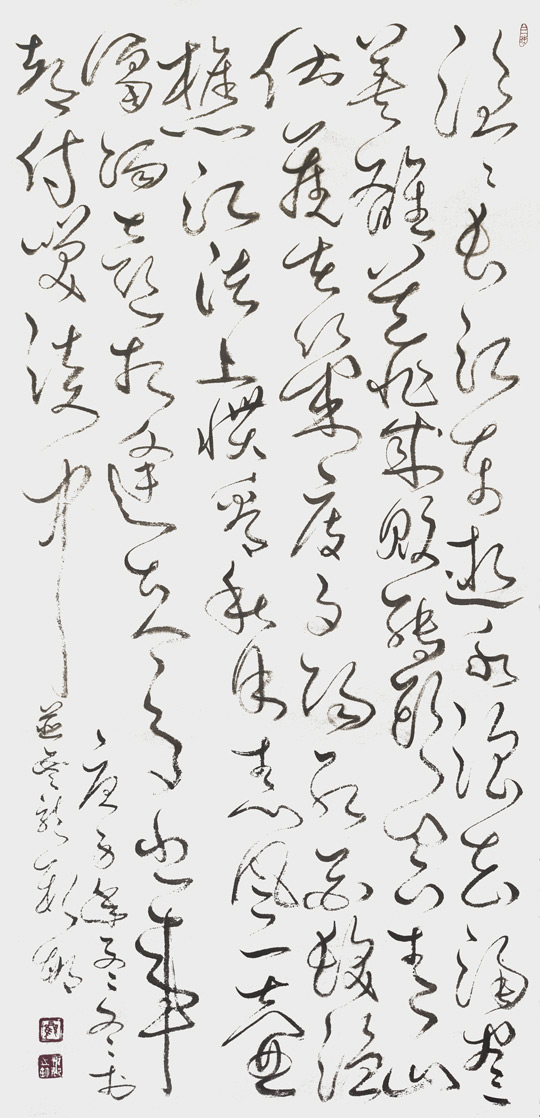 滾滾長江東逝水浪花淘盡
英雄是非成敗轉頭空青山
依舊在幾度夕陽紅白髮漁
樵江渚上慣看秋月春風一壺
濁酒喜相逢古今多少事
都付笑談中
庚子年冬於